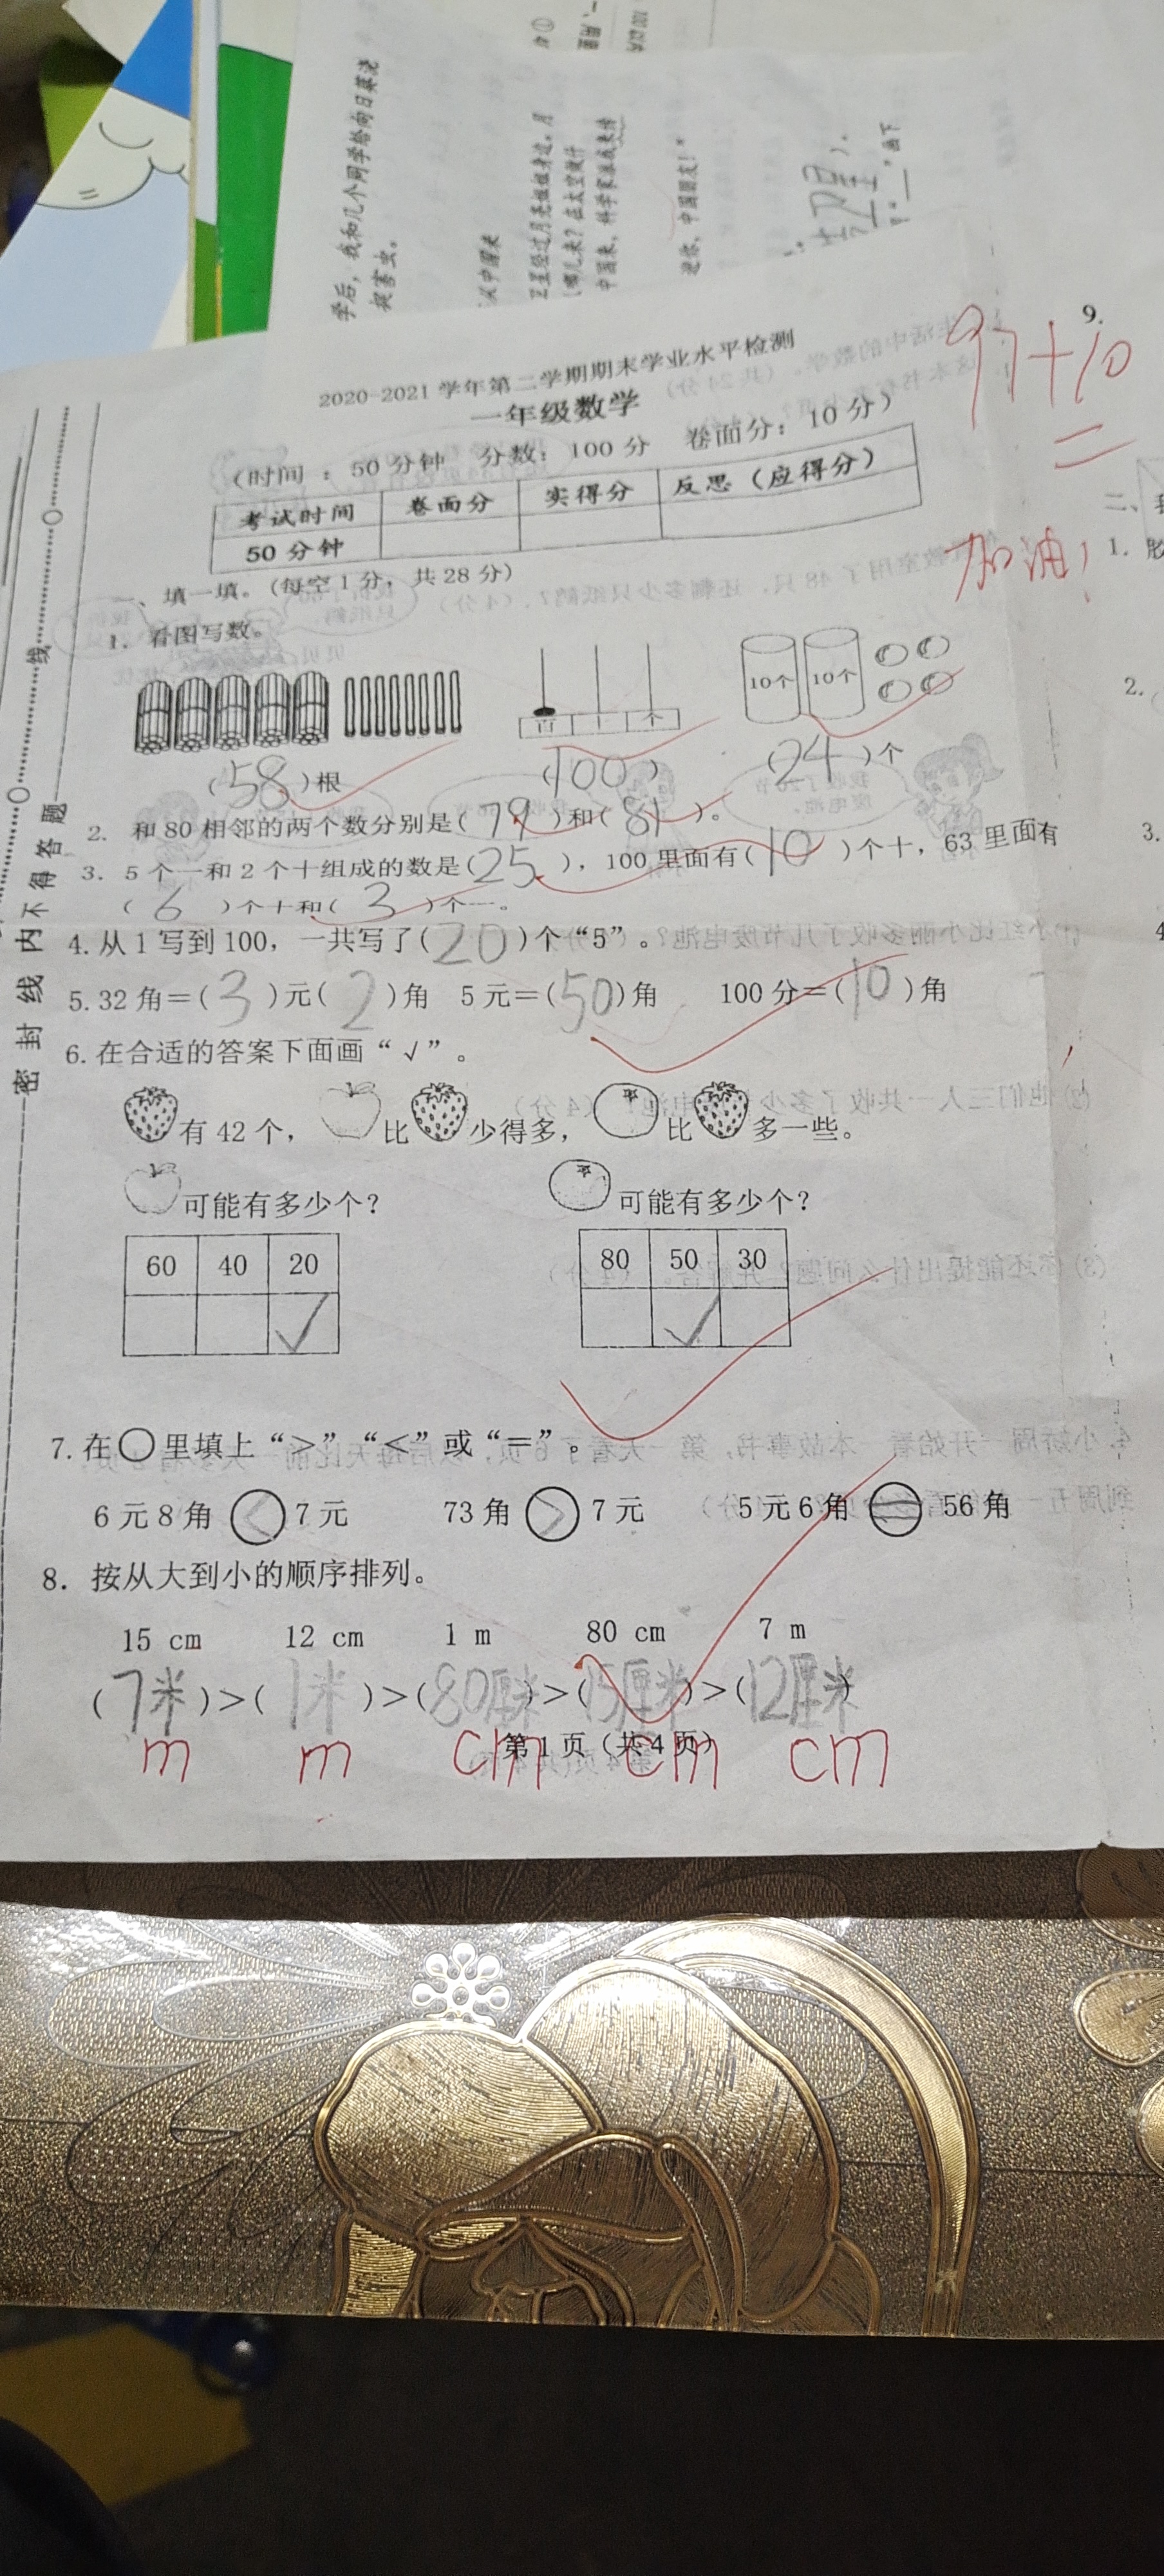 学后，我和几个同学给向日葵浇
捉害虫。
从中国来
卫星经过月亮姐姐身边。月
哪儿来？在太空做什
中国来，科学家派我来待
迎你，中国朋友！”
2020-2021 学年第二学期期末学业水平检测
一年级数学
（时间 ：50 分钟 分数：100 分 卷面分：10 分）
考试时间 卷面分 实得分 反思（应得分）
50 分钟
97+10
加油！
密 封 线 内 不 得 答 题
线
一、填一填。（每空 1 分，共 28 分）
1．看图写数。
10个 10个
百 十 个
（58）根 （100） （24）个
2．和 80 相邻的两个数分别是（79）和（81）。
3．5 个一和 2 个十组成的数是（25），100 里面有（10）个十，63 里面有
（6）个十和（3）个一。
4.从 1 写到 100，一共写了（20）个“5”。
5.32 角＝（3）元（2）角 5 元＝（50）角 100 分＝（10）角
6.在合适的答案下面画“√”。
有 42 个， 比 少得多， 比 多一些。
可能有多少个？ 可能有多少个？
60 40 20 80 50 30
√ √
7.在○里填上“＞”“＜”或“＝”。
6 元 8 角 ＜ 7 元 73 角 ＞ 7 元 5 元 6 角 ＝ 56 角
8．按从大到小的顺序排列。
15 cm 12 cm 1 m 80 cm 7 m
（7米）＞（1米）＞（80厘米）＞（15厘米）＞（12厘米）
m m cm cm cm
第 1 页（共 4 页）
9.
二、
1.
2.
3.
4